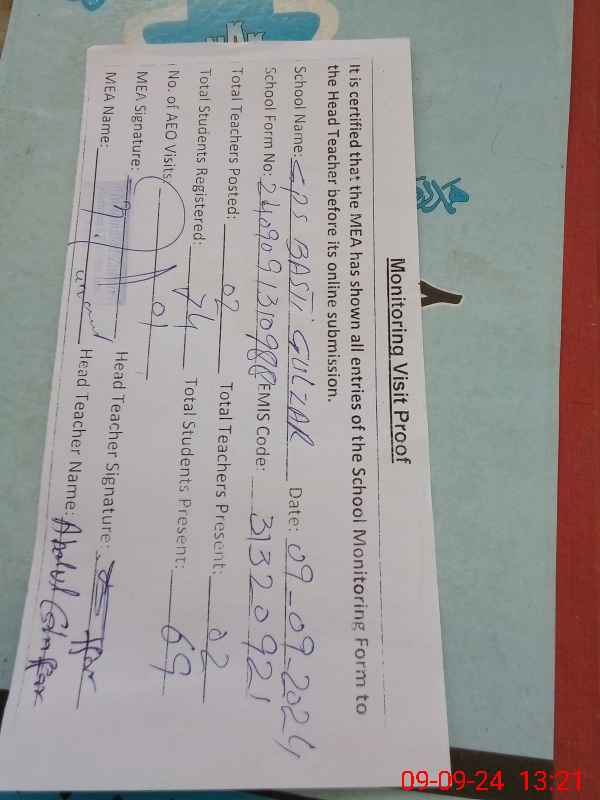 Monitoring Visit Proof
It is certified that the MEA has shown all entries of the School Monitoring Form to
the Head Teacher before its online submission.
School Name: GPS BASTI GULZAR Date: 09-09-2024
School Form No: EMIS Code: 31320921
Total Teachers Posted: 02 Total Teachers Present: 02
Total Students Registered: 74 Total Students Present: 69
No. of AEO Visits: 01
MEA Signature: Head Teacher Signature:
MEA Name: Head Teacher Name: Abdul Ghaffar
09-09-24 13:21